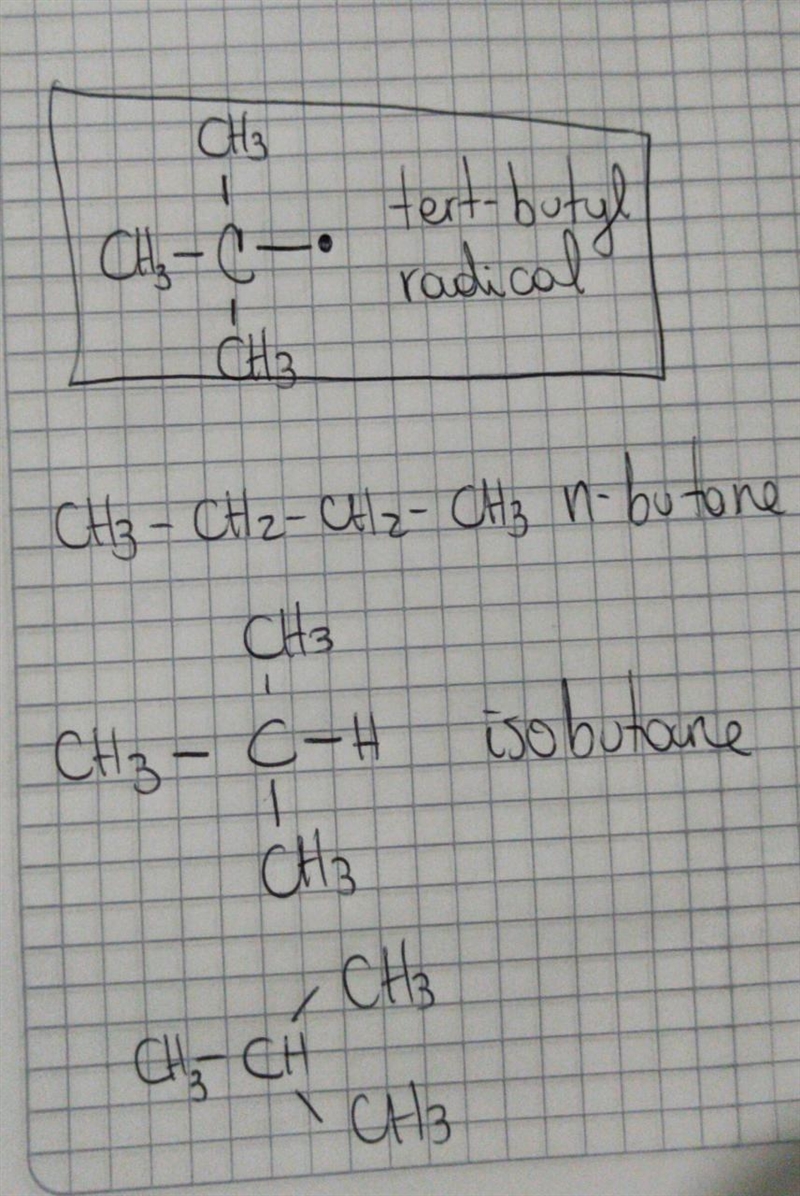 CH3
CH3-C-• tert-butyl
radical
CH3
CH3-CH2-CH2-CH3 n-butane
CH3
CH3-C-H isobutane
CH3
CH3
CH3-CH
CH3